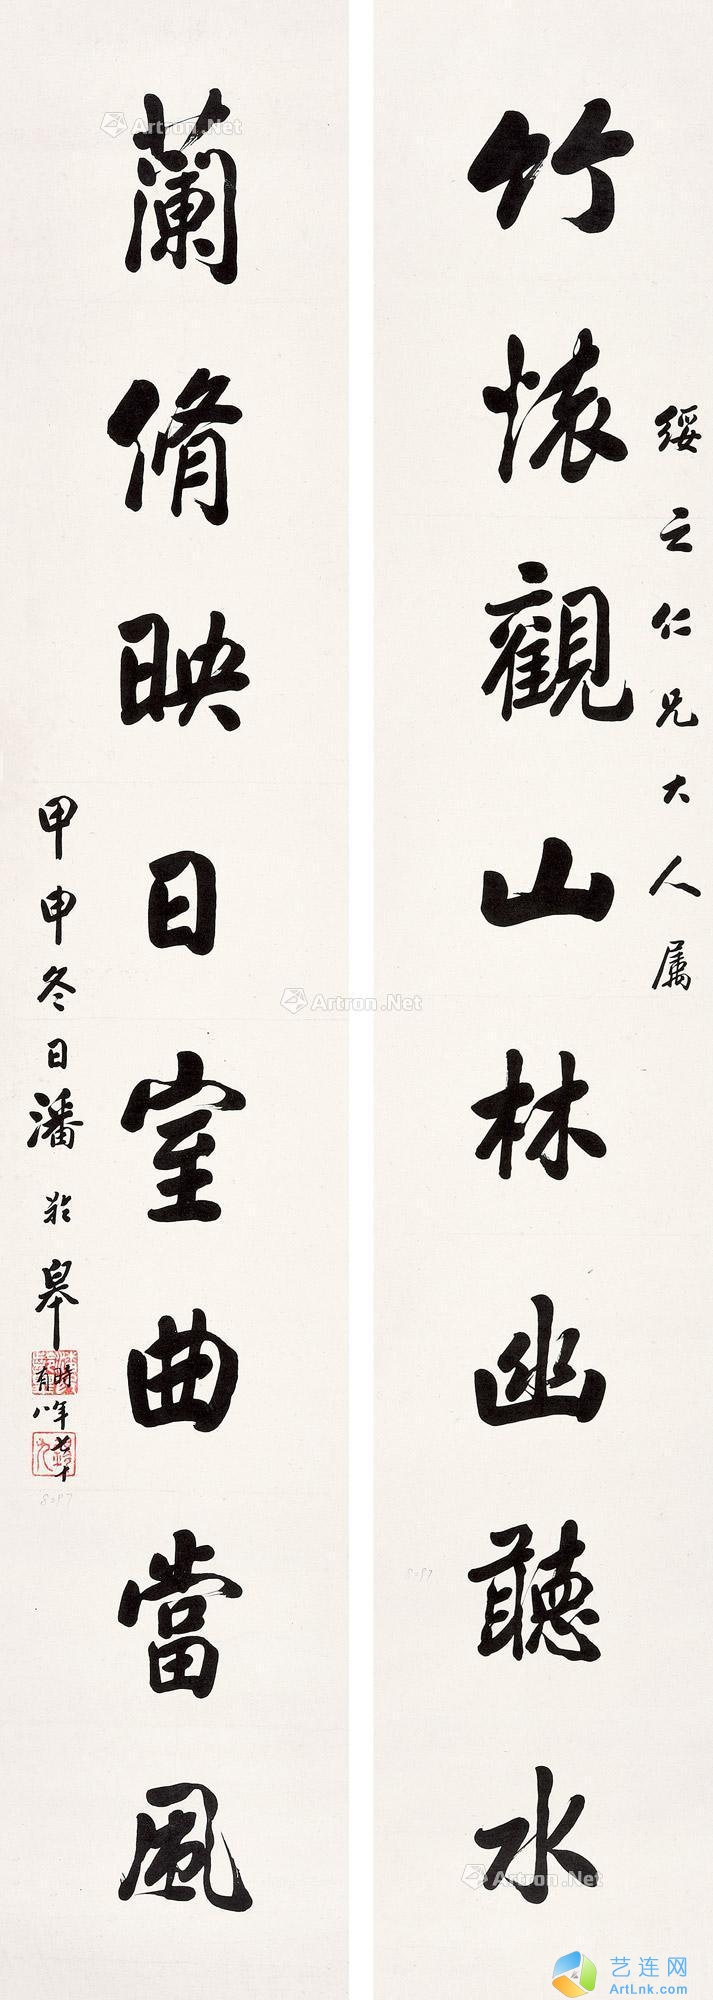 綏之仁兄大人属
竹懷觀山林幽聽水
蘭脩映日室曲當風
甲申冬日潘齡皋
時年七十
有八
錫九
Artron.Net
Artron.Net
Artron.Net
艺连网
ArtLnk.com